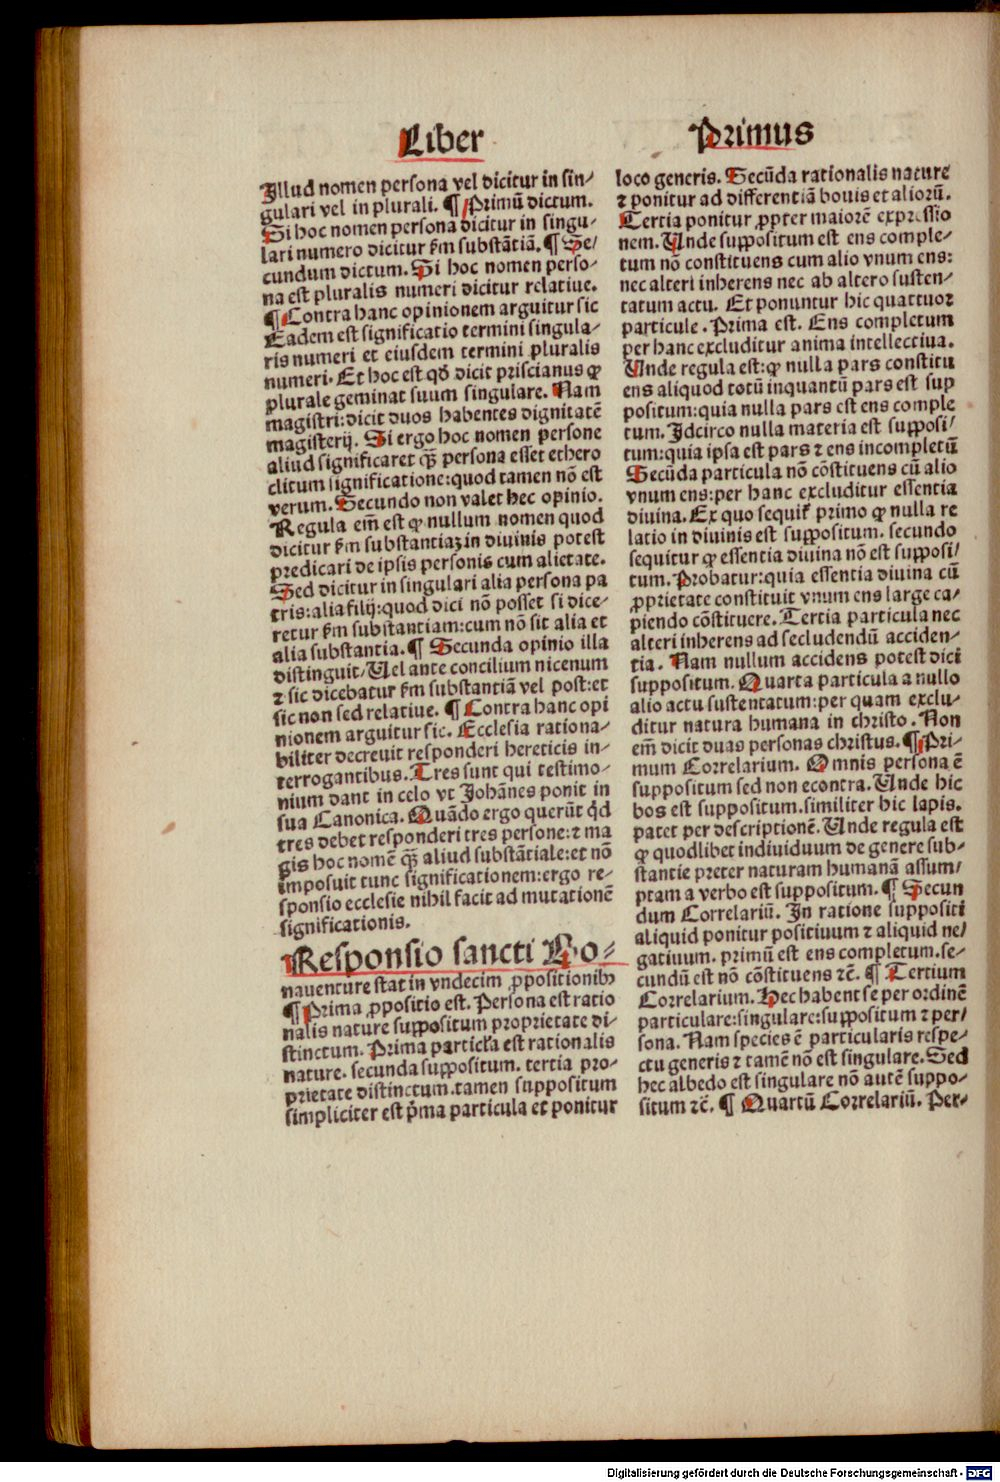 Liber
Illud nomen persona vel dicitur in sin-
gulari vel in plurali. ¶ Primũ dictum.
Si hoc nomen persona dicitur in singu-
lari numero dicitur ẜm substãtiã. ¶ Se-
cundum dictum. Si hoc nomen perso-
na est pluralis numeri dicitur relatiue.
¶ Contra hanc opinionem arguitur sic
Eadem est significatio termini singula-
ris numeri et eiusdem termini pluralis
numeri. Et hoc est qđ dicit priscianus ꝙ
plurale geminat suum singulare. Nam
magistri: dicit duos habentes dignitatẽ
magisterij. Si ergo hoc nomen persone
aliud significaret q̃ꝫ persona esset ethero
clitum significatione: quod tamen nõ est
verum. Secundo non valet hec opinio.
Regula em̃ est ꝙ nullum nomen quod
dicitur ẜm substantiaꝫ in diuinis potest
predicari de ipsis personis cum alietate.
Sed dicitur in singulari alia persona pa
tris: alia filij: quod dici nõ posset si dice-
retur ẜm substantiam: cum nõ sit alia et
alia substantia. ¶ Secunda opinio illa
distinguit/ Uel ante concilium nicenum
⁊ sic dicebatur ẜm substantiã vel post: et
sic non sed relatiue. ¶ Contra hanc opi
nionem arguitur sic. Ecclesia rationa-
biliter decreuit responderi hereticis in-
terrogantibus. Tres sunt qui testimo-
nium dant in celo vt Johãnes ponit in
sua Canonica. Quãdo ergo querũt qđ
tres debet responderi tres persone: ⁊ ma
gis hoc nomẽ q̃ꝫ aliud substãtiale: et nõ
imposuit tunc significationem: ergo re-
sponsio ecclesie nihil facit ad mutationẽ
significationis.
Responsio sancti Bo-
nauenture stat in vndecim ꝓpositionibꝰ
¶ Prima ꝓpositio est. Persona est ratio
nalis nature suppositum proprietate di-
stinctum. Prima particĩa est rationalis
nature. secunda suppositum. tertia pro-
prietate distinctum. tamen suppositum
simpliciter est p̃ma particula et ponitur
Primus
loco generis. Secũda rationalis nature
⁊ ponitur ad differentiã bouis et aliorũ.
Tertia ponitur ꝓpter maiorẽ expressio
nem. Unde suppositum est ens comple-
tum nõ constituens cum alio vnum ens:
nec alteri inherens nec ab altero susten-
tatum actu. Et ponuntur hic quattuor
particule. Prima est. Ens completum
per hanc excluditur anima intellectiua.
Unde regula est: ꝙ nulla pars constitu
ens aliquod totũ inquantũ pars est sup
positum: quia nulla pars est ens comple
tum. Idcirco nulla materia est supposi-
tum: quia ipsa est pars ⁊ ens incompletũ
Secũda particula nõ cõstituens cũ alio
vnum ens: per hanc excluditur essentia
diuina. Ex quo sequit᷑ primo ꝙ nulla re
latio in diuinis est suppositum. secundo
sequitur ꝙ essentia diuina nõ est supposi-
tum. Probatur: quia essentia diuina cũ
ꝓprietate constituit vnum ens large ca-
piendo cõstituere. Tertia particula nec
alteri inherens ad secludendũ acciden-
tia. Nam nullum accidens potest dici
suppositum. Quarta particula a nullo
alio actu sustentatum: per quam exclu-
ditur natura humana in christo. Non
em̃ dicit duas personas christus. ¶ Pri-
mum Correlarium. Omnis persona ẽ
suppositum sed non econtra. Unde hic
bos est suppositum. similiter hic lapis.
patet per descriptionẽ. Unde regula est
ꝙ quodlibet indiuiduum de genere sub-
stantie preter naturam humanã assum-
ptam a verbo est suppositum. ¶ Secun
dum Correlariũ. In ratione suppositi
aliquid ponitur positiuum ⁊ aliquid ne-
gatiuum. primũ est ens completum. se-
cundũ est nõ cõstituens ⁊c̃. ¶ Tertium
Correlarium. Hec habent se per ordinẽ
particulare: singulare: suppositum ⁊ per-
sona. Nam species ẽ particularis respe-
ctu generis ⁊ tamẽ nõ est singulare. Sed
hec albedo est singulare nõ autẽ suppo-
situm ⁊c̃. ¶ Quartũ Correlariũ. Per-
Digitalisierung gefördert durch die Deutsche Forschungsgemeinschaft - DFG